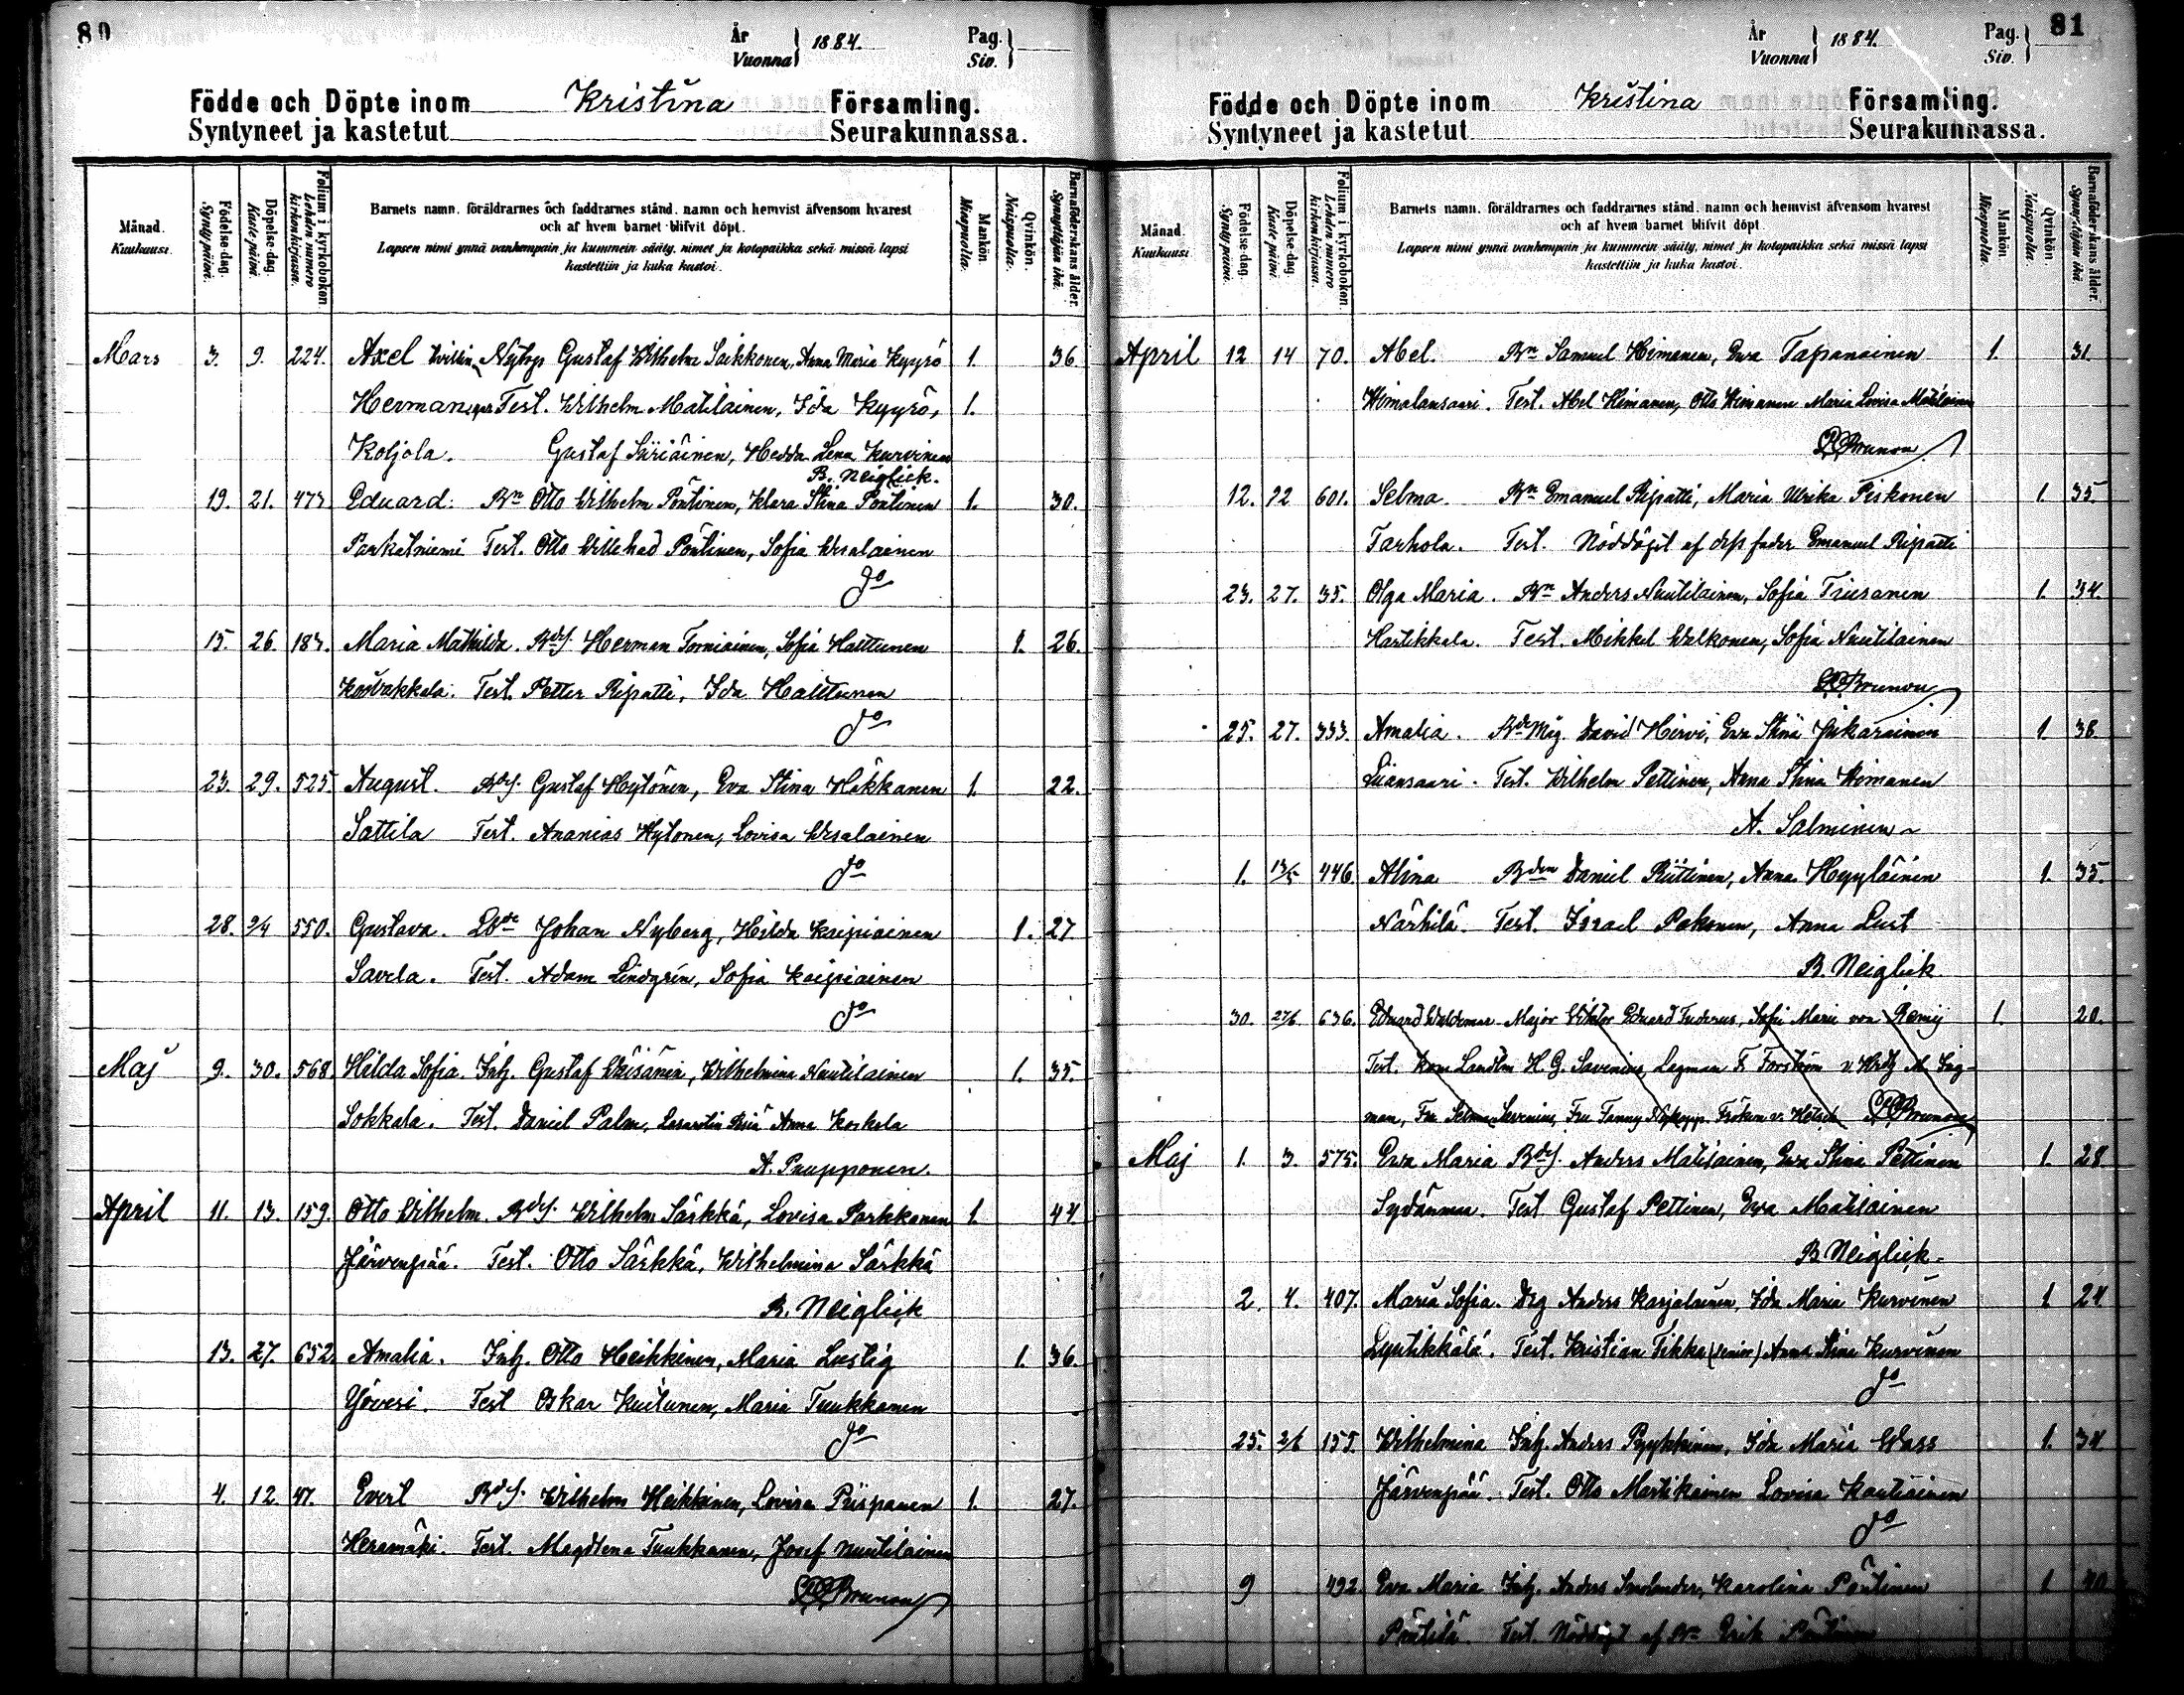 80
År
Vuonna
1884.
Pag.
Siv.
Födde och Döpte inom Kristina Församling.
Syntyneet ja kastetut Seurakunnassa.
Månad.
Kuukausi.
Födelse-dag.
Syntypäivä.
Döpelse-dag.
Kaste-päivä.
Folium i kyrkobokon.
Lehden numero kirkonkirjassa.
Barnets namn, föräldrarnes och faddrarnes stånd, namn och hemvist äfvensom hvarest
och af hvem barnet blifvit döpt.
Lapsen nimi ynnä vanhempain ja kummein sääty, nimet ja kotopaikka sekä missä lapsi
kastettiin ja kuka kastoi.
Mankön.
Miespuolia.
Qvinkön.
Naispuolia.
Barnaföderskans ålder.
Synnyttäjän ikä.
Mars 3. 9. 224. Axel Nybgs Gustaf Wilhelm Saikkonen, Anna Maria Kyyrö 1. 36
Herman Test. Wilhelm Matilainen, Ida Kyyrö, 1.
Koljola. Gustaf Siiriäinen, Hedda Lena Kurvinen
B. Neiglick.
19. 21. 473 Eduard. Bn Otto Wilhelm Pöntinen, Klara Stina Pöntinen 1. 30.
Parkatniemi Test. Otto Willehad Pöntinen, Sofia Wesalainen
do
15. 26. 183. Maria Mathilda. Bds. Herman Torniainen, Sofia Halttunen 1. 26.
Koivakkala. Test. Petter Ripatti, Ida Halttunen
do
23. 29. 525. August. Bds. Gustaf Hytönen, Eva Stina Häkkänen 1. 22.
Sattila Test. Ananias Hytonen, Lovisa Wesalainen
do
28. 2/4 550. Gustava. Johan Nyberg, Hilda Kaipiainen 1. 27
Savela. Test. Adam Lindgren, Sofia Kaipiainen
do
Maj 9. 30. 568. Hilda Sofia. Inh. Gustaf Wäisänen, Wilhelmina Nuutilainen 1. 35.
Sokkala. Test. Daniel Palm, Anna Koskela
A. Prupponen.
April 11. 13. 159. Otto Wilhelm. Bds. Wilhelm Särkkä, Lovisa Parkkonen 1. 44
Järvenpää. Test. Otto Särkkä, Wilhelmina Särkkä
B. Neiglick
13. 27. 652. Amalia. Inh. Otto Heikkinen, Maria Lustig 1. 36.
Yövesi. Test Oskar Kuitunen, Maria Tuukkanen
do
4. 12 47. Evert Bds. Wilhelm Heikkinen, Lovisa Piispanen 1. 27.
Heramäki. Test. Magdlena Tuukkanen, Josef Nuutilainen
Brunou
År
Vuonna
1884.
Pag.
Siv.
81
Födde och Döpte inom Kristina Församling.
Syntyneet ja kastetut Seurakunnassa.
Månad.
Kuukausi.
Födelse-dag.
Syntypäivä.
Döpelse-dag.
Kaste-päivä.
Folium i kyrkobokon.
Lehden numero kirkonkirjassa.
Barnets namn, föräldrarnes och faddrarnes stånd, namn och hemvist äfvensom hvarest
och af hvem barnet blifvit döpt.
Lapsen nimi ynnä vanhempain ja kummein sääty, nimet ja kotopaikka sekä missä lapsi
kastettiin ja kuka kastoi.
Mankön.
Miespuolia.
Qvinkön.
Naispuolia.
Barnaföderskans ålder.
Synnyttäjän ikä.
April 12 14 70. Abel. Bn Samuel Himanen, Ewa Tapanainen 1. 31.
Himalansaari. Test. Abel Himanen, Otto Himanen Maria Lovisa Matilainen
Brunou
12. 12 601. Selma. Bn Emanuel Ripatti, Maria Ulrika Piskonen 1. 35
Tarhola. Test. Nöddöpt af dess fader Emanuel Ripatti
23. 27. 35. Olga Maria. Bn Anders Nuutilainen, Sofia Tiusanen 1. 34.
Hartikkala. Test. Mikkel Walkonen, Sofia Nuutilainen
Brunou
25. 27. 333. Amalia. Måg. David Hirvi, Eva Stina Jukarainen 1. 38
Liiansaari. Test. Wilhelm Pettinen, Anna Stina Himanen
A. Salminen
1. 13/5 446. Alina Bden Daniel Riittinen, Anna Hyyläinen 1. 35.
Närhilä. Test. Israel Pakonen, Anna Lust
B. Neiglick
30. 27/6 636. Eduard Waldemar Major Viktor Eduard Tuderus, Sofie Marie von Remy 1. 20.
Test. Kom Landtm H. G. Savenius, Lagman F. Forström
man, Fru Selma Savenius, Fru Fanny Nykopp Fröken v. Brunou
Maj 1. 3. 575. Ewa Maria Bds. Anders Matilainen, Ewa Stina Pettinen 1. 28
Sydänmaa. Test Gustaf Pettinen, Ewa Matilainen
B Neiglick.
2. 4. 407. Maria Sofia. Drg Anders Karjalainen, Ida Maria Kurvinen 1 24
Lyytikkälä. Test. Kristian Tikka (senior) Anna Stina Kurvinen
do
25. 2/6 155. Wilhelmina Inh. Anders Pyykkinen, Ida Maria Wass 1. 34
Järvenpää. Test. Otto Martikainen Lovisa Kautiainen
do
9 492. Eva Maria Inh. Anders Smolander, Karolina Pöntinen 1 40
Pöntilä. Test. Nöddöpt af Bn Erik Pöntinen